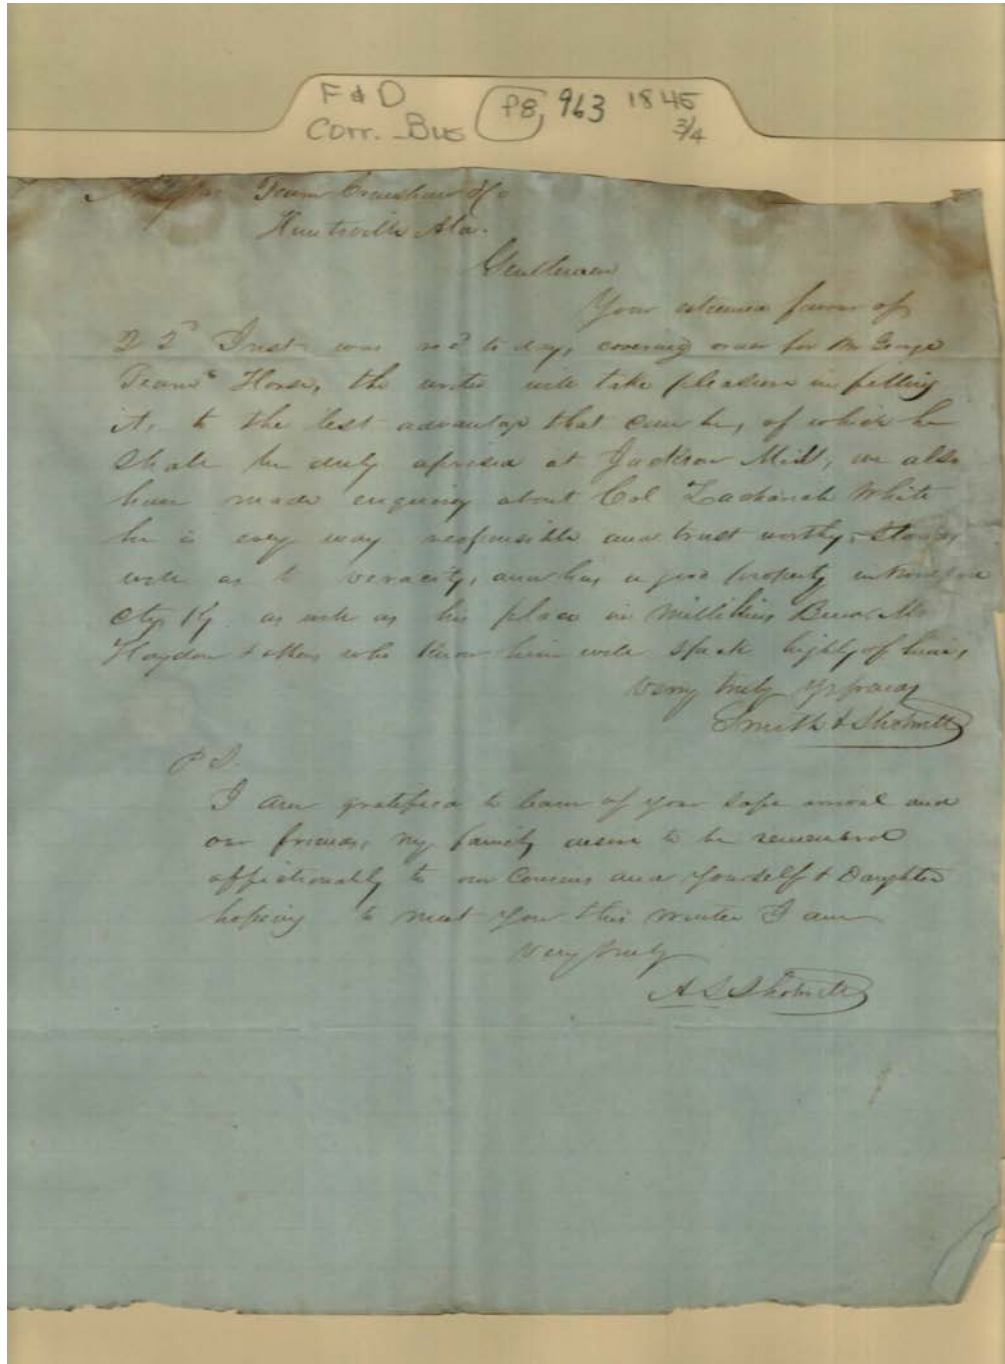 F & D P8, 963 1845
Corr. Bus 3/4
Huntsville Ala.
Gentlemen
Your esteemed favour of
22d Inst was recd to day, covering order for Mr George
House, the writer will take pleasure in filling
it, to the best advantage that can be, of which he
shall be duly aprised at Jackson Mill, we also
have made enquiry about Col Zachariah White
he is every way responsible and trust worthy, stands
well as to veracity, and has a good property in
Cty Ky. as well as his place in Millikins Bend. Mr
Haydon & others who know him well speak highly of him,
very truly yr friends
Smith &
P S.
I am gratified to learn of your safe arrival and
our friends, my family desire to be remembred
affictionately to our Cousins and yourself & Daughter
hoping to meet you this winter I am
very truly
A S